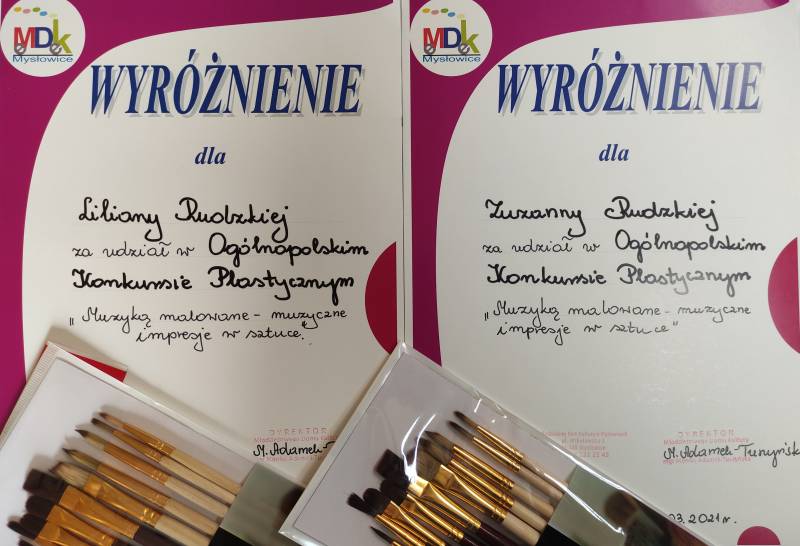 MDK
Mysłowice
WYRÓŻNIENIE
dla
Liliany Rudzkiej
za udział w Ogólnopolskim
Konkursie Plastycznym
„Muzyką malowane - muzyczne
impresje w sztuce"
DYREKTOR
Młodzieżowego Domu Kultury
M. Adamek-Tu
MDK
Mysłowice
WYRÓŻNIENIE
dla
Zuzanny Rudzkiej
za udział w Ogólnopolskim
Konkursie Plastycznym
„Muzyką malowane - muzyczne
impresje w sztuce"
DYREKTOR
Młodzieżowego Domu Kultury
M. Adamek-Turzyńsk
03.2021 r.